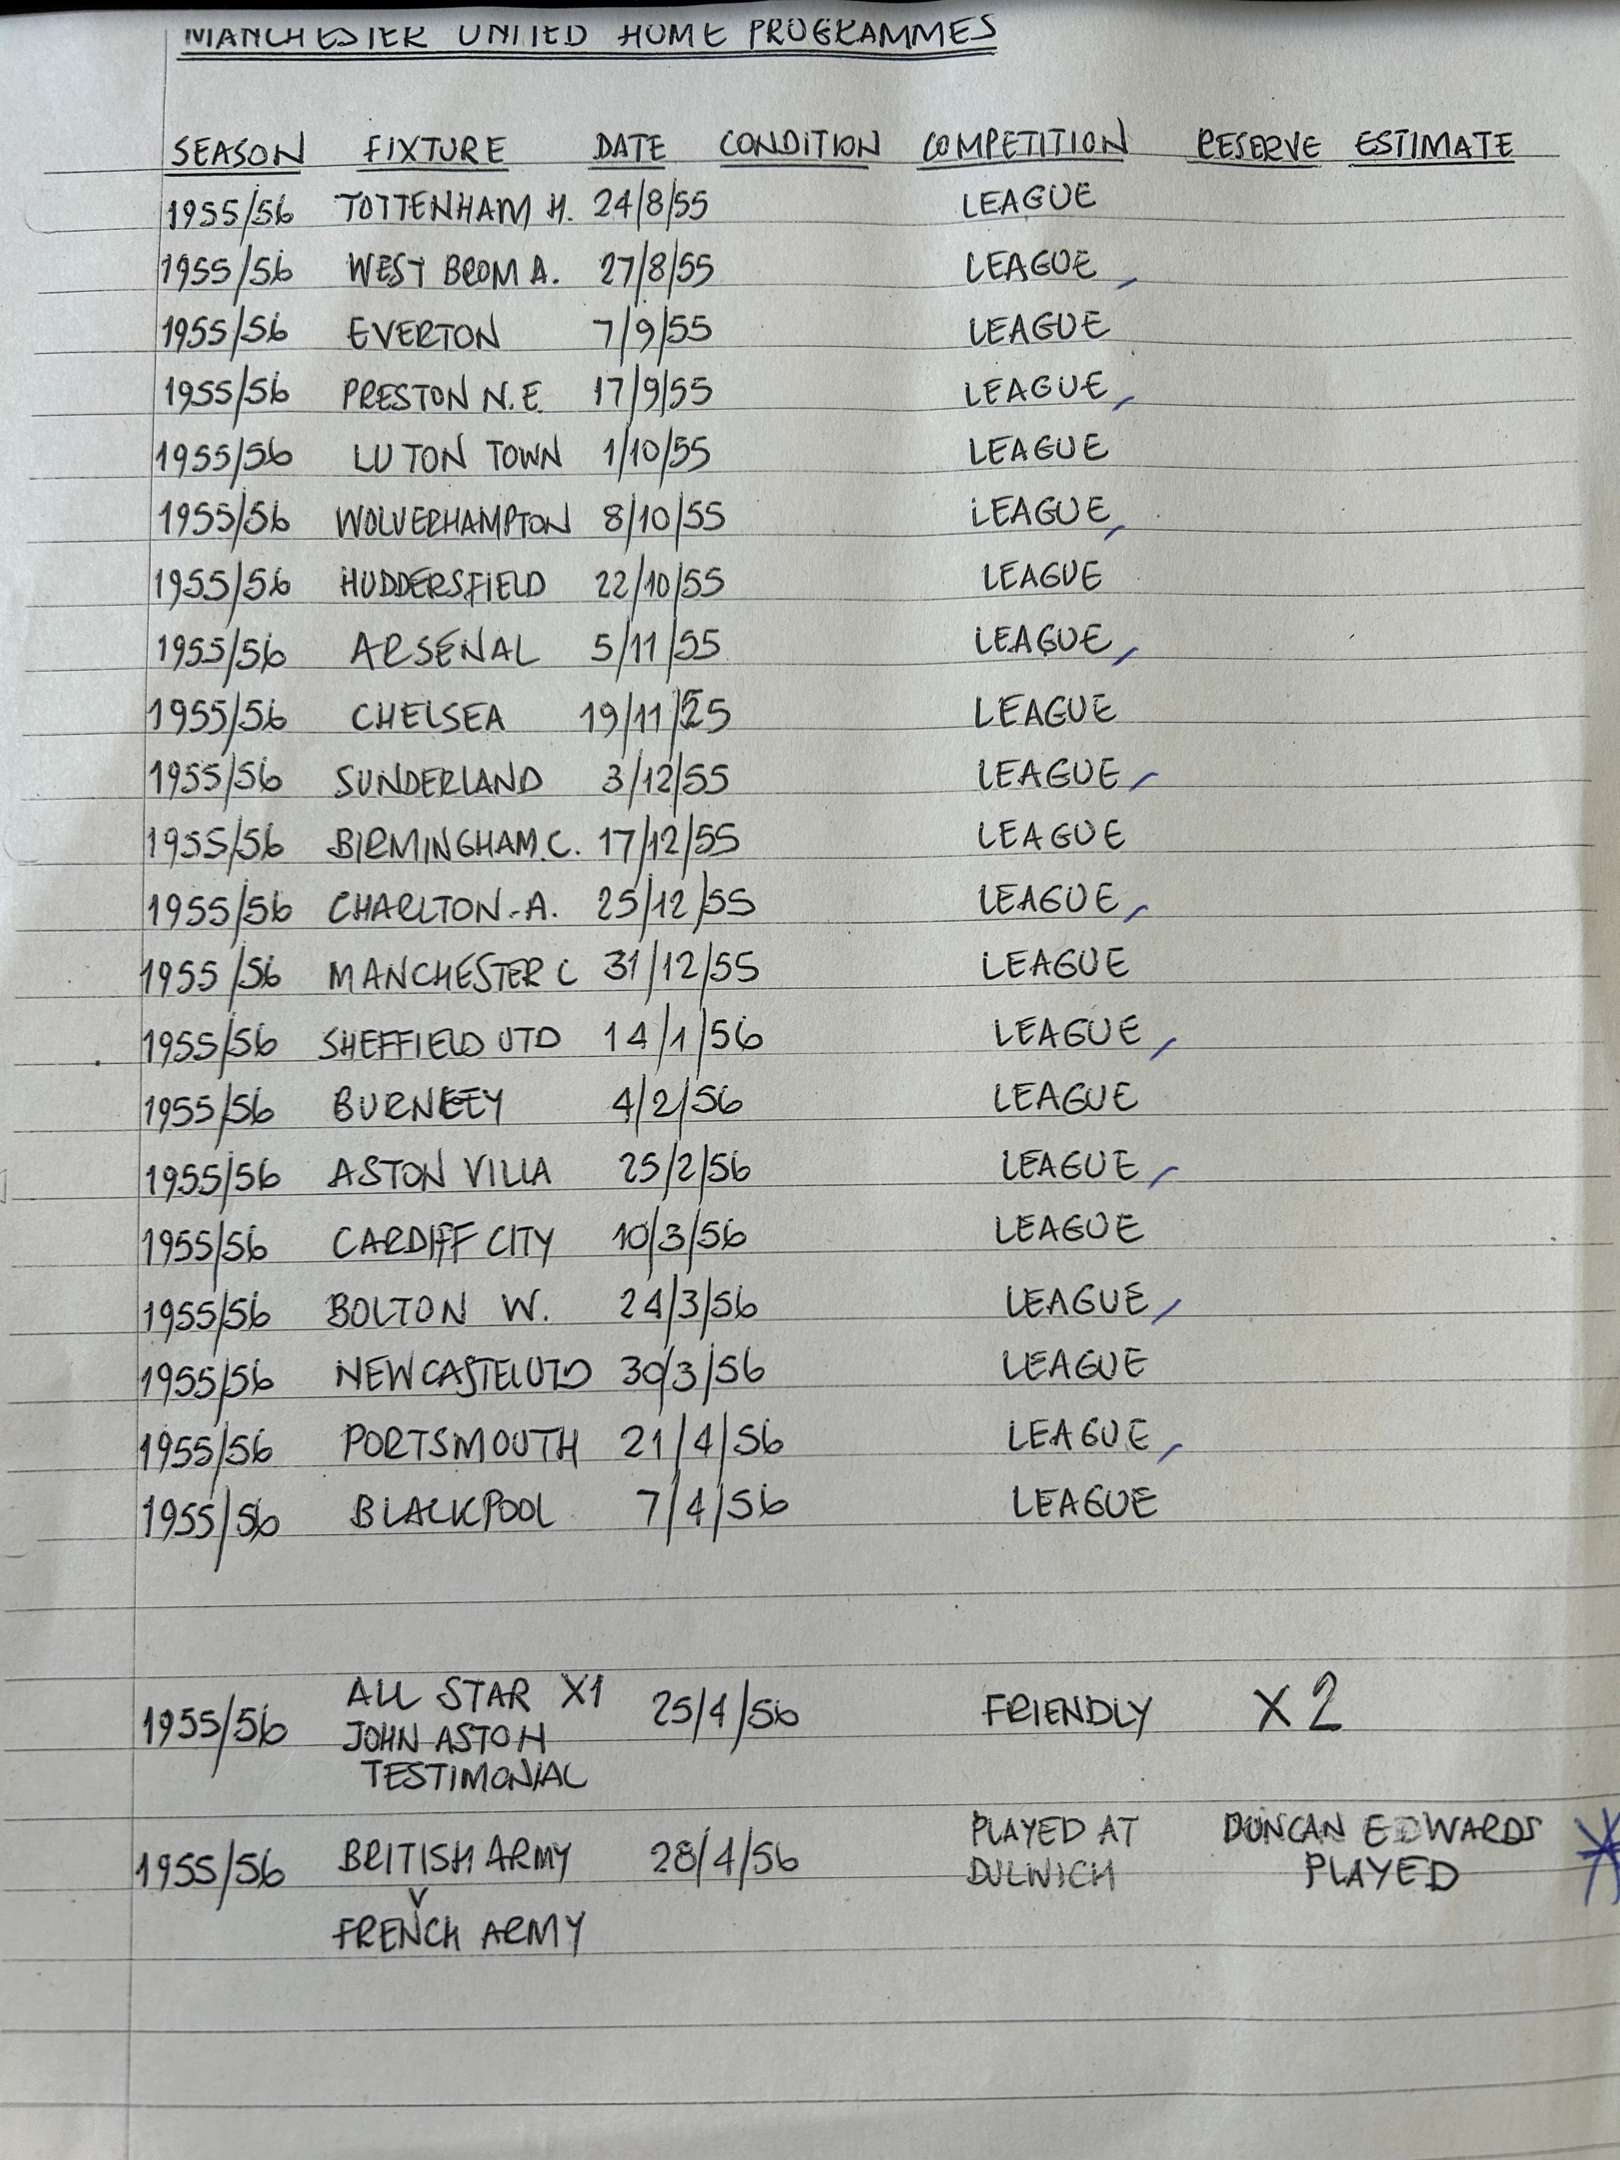 MANCHESTER UNITED HOME PROGRAMMES
SEASON FIXTURE DATE CONDITION COMPETITION RESERVE ESTIMATE
1955/56 TOTTENHAM H. 24/8/55 LEAGUE
1955/56 WEST BROM A. 27/8/55 LEAGUE
1955/56 EVERTON 7/9/55 LEAGUE
1955/56 PRESTON N.E. 17/9/55 LEAGUE
1955/56 LUTON TOWN 1/10/55 LEAGUE
1955/56 WOLVERHAMPTON 8/10/55 LEAGUE
1955/56 HUDDERSFIELD 22/10/55 LEAGUE
1955/56 ARSENAL 5/11/55 LEAGUE
1955/56 CHELSEA 19/11/55 LEAGUE
1955/56 SUNDERLAND 3/12/55 LEAGUE
1955/56 BIRMINGHAM.C. 17/12/55 LEAGUE
1955/56 CHARLTON-A. 25/12/55 LEAGUE
1955/56 MANCHESTER C 31/12/55 LEAGUE
1955/56 SHEFFIELD UTD 14/1/56 LEAGUE
1955/56 BURNLEY 4/2/56 LEAGUE
1955/56 ASTON VILLA 25/2/56 LEAGUE
1955/56 CARDIFF CITY 10/3/56 LEAGUE
1955/56 BOLTON W. 24/3/56 LEAGUE
1955/56 NEWCASTEL UTD 30/3/56 LEAGUE
1955/56 PORTSMOUTH 21/4/56 LEAGUE
1955/56 BLACKPOOL 7/4/56 LEAGUE
ALL STAR X1
1955/56 JOHN ASTON 25/4/56 FRIENDLY X2
TESTIMONIAL
PLAYED AT DUNCAN EDWARDS
1955/56 BRITISH ARMY 28/4/56 DULWICH PLAYED
V
FRENCH ARMY